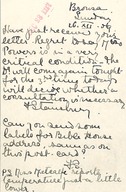 Brousa
Sunday
16. XII. 23
Have just received your
letter. Regret Dr.
Powers is in a very
critical condition. The
will come again tonight
for the 3rd time to-day
will decide whether a
consultation is necessary
Can you send some
labels for Bible House
address, same as on
this post-card?
P.S. Miss Metcalfe reports
temperature just a little
lower.